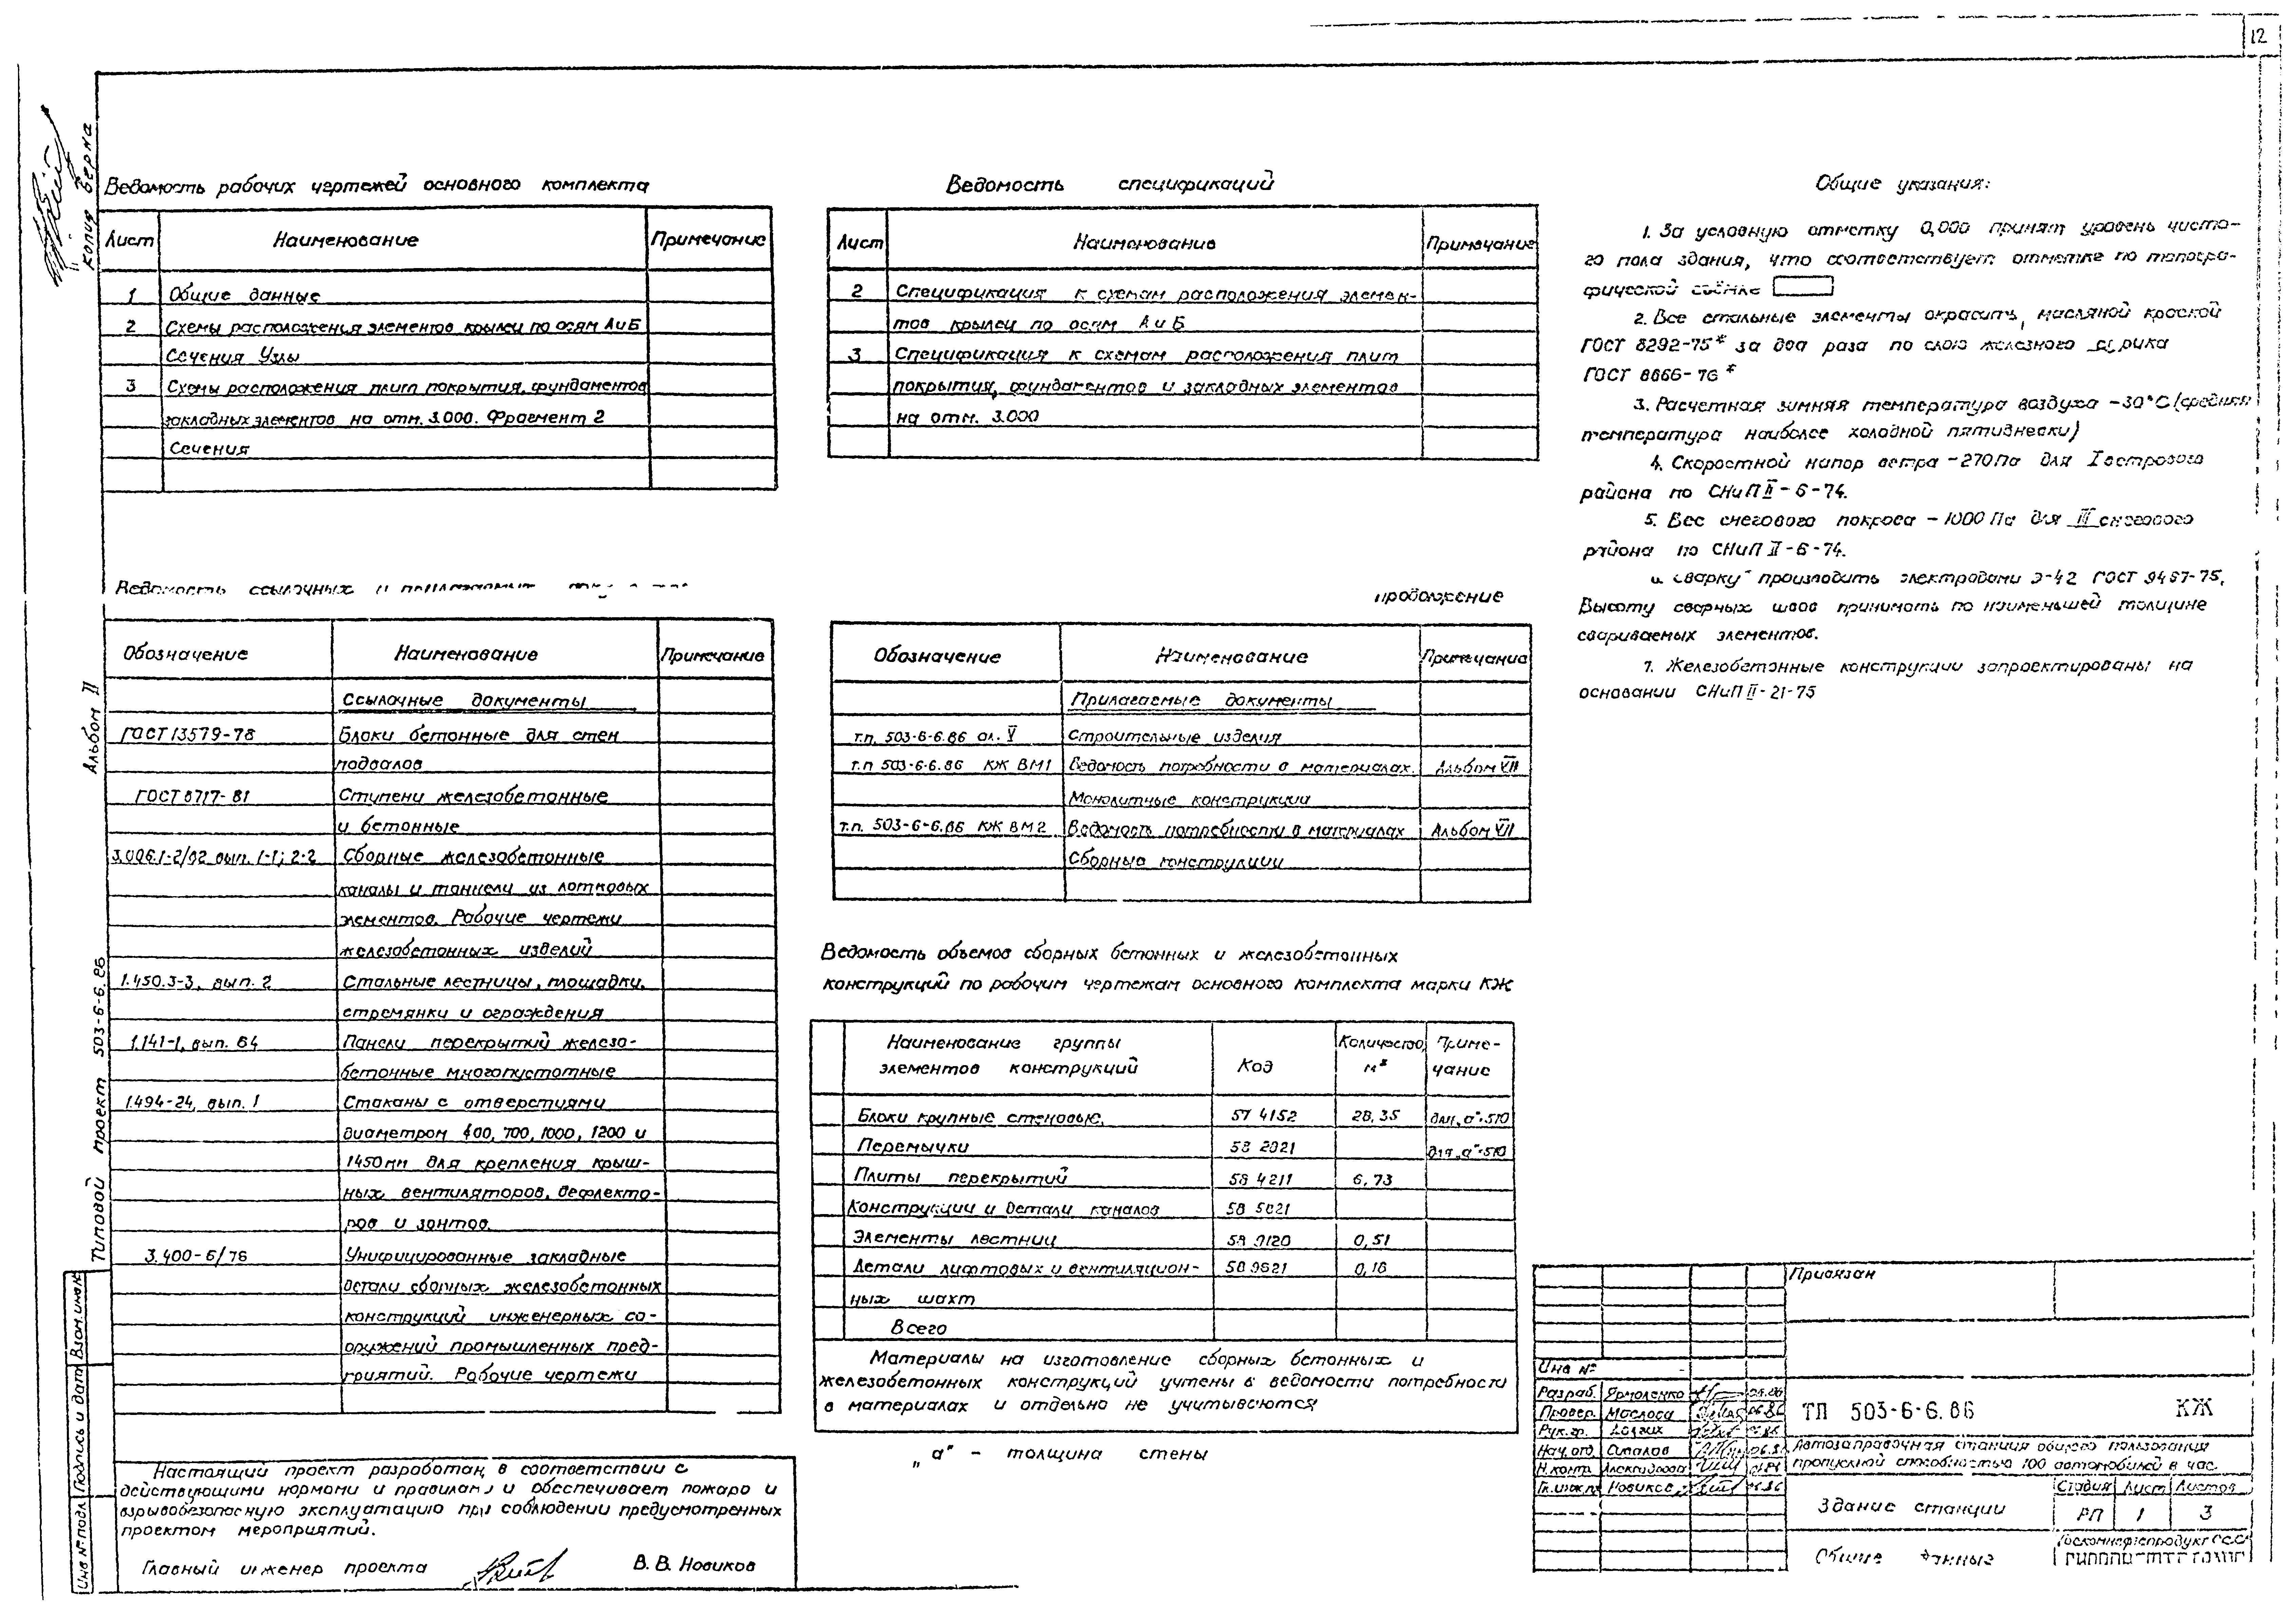 12
Копия верна
Альбом II
Типовой проект 503-6-6.86
Взам.инв.№
Подпись и дата
Инв № подл
Ведомость рабочих чертежей основного комплекта
Лист Наименование Примечание
1 Общие данные
2 Схемы расположения элементов крылец по осям А и Б
Сечения Узлы
3 Схемы расположения плит покрытия, фундаментов
закладных элементов на отм. 3.000. Фрагмент 2
Сечения
Ведомость спецификаций
Лист Наименование Примечание
2 Спецификация к схемам расположения элемен-
тов крылец по осям А и Б
3 Спецификация к схемам расположения плит
покрытия, фундаментов и закладных элементов
на отм. 3.000
Общие указания:
1. За условную отметку 0,000 принят уровень чисто-
го пола здания, что соответствует отметке по топогра-
фической съёмке
2. Все стальные элементы окрасить, масляной краской
ГОСТ 8292-75* за два раза по слою железного сурика
ГОСТ 8866-76*
3. Расчетная зимняя температура воздуха -30°С (средняя
температура наиболее холодной пятидневки)
4. Скоростной напор ветра -270 Па для I ветрового
района по СНиП II-6-74.
5. Вес снегового покрова -1000 Па для III снегового
района по СНиП II-6-74.
Сварку производить электродами Э-42 ГОСТ 9467-75,
Высоту сварных швов принимать по наименьшей толщине
свариваемых элементов.
7. Железобетонные конструкции запроектированы на
основании СНиП II-21-75
Ведомость ссылочных и прилагаемых
Обозначение Наименование Примечание
Ссылочные документы
ГОСТ 13579-78 Блоки бетонные для стен
подвалов
ГОСТ 8717-81 Ступени железобетонные
и бетонные
3.006.1-2/82 вып. 1-1; 2-2 Сборные железобетонные
каналы и тоннели из лотковых
элементов. Рабочие чертежи
железобетонных изделий
1.450.3-3, вып. 2 Стальные лестницы, площадки,
стремянки и ограждения
1.141-1, вып. 64 Панели перекрытий железо-
бетонные многопустотные
1.494-24, вып. 1 Стаканы с отверстиями
диаметром 400, 700, 1000, 1200 и
1450мм для крепления крыш-
ных вентиляторов, дефлекто-
ров и зонтов.
3.400-6/76 Унифицированные закладные
детали сборных железобетонных
конструкций инженерных со-
оружений промышленных пред-
приятий. Рабочие чертежи
продолжение
Обозначение Наименование Примечание
Прилагаемые документы
т.п. 503-6-6.86 ал. V Строительные изделия
т.п 503-6-6.86 КЖ ВМ1 Ведомость потребности в материалах. Альбом VII
Монолитные конструкции
т.п. 503-6-6.86 КЖ ВМ2 Ведомость потребности в материалах Альбом VII
Сборные конструкции
Ведомость объемов сборных бетонных и железобетонных
конструкций по рабочим чертежам основного комплекта марки КЖ
Наименование группы элементов конструкций Код Количество м³ Приме-чание
Блоки крупные стеновые. 57 4152 28,35 для „а"=510
Перемычки 58 2821 для „а"=510
Плиты перекрытий 58 4211 6,73
Конструкции и детали каналов 58 5821
Элементы лестниц 58 9120 0,51
Детали лифтовых и вентиляцион- 58 9621 0,18
ных шахт
Всего
Материалы на изготовление сборных бетонных и
железобетонных конструкций учтены в ведомости потребности
в материалах и отдельно не учитываются
„а" - толщина стены
Настоящий проект разработан в соответствии с
действующими нормами и правилами и обеспечивает пожаро и
взрывобезопасную эксплуатацию при соблюдении предусмотренных
проектом мероприятий.
Главный инженер проекта В. В. Новиков
Привязан
Инв №
Разраб. Ярмоленко
Провер. Маслова
Рук. гр. Долгих
Нач. отд.
Н. контр.
Гл. инж. пр. Новиков
ТП 503-6-6.86 КЖ
Автозаправочная станция общего пользования
пропускной способностью 100 автомобилей в час.
Здание станции
Стадия Лист Листов
РП 1 3
Общие данные
Госкомнефтепродукт РСФСР